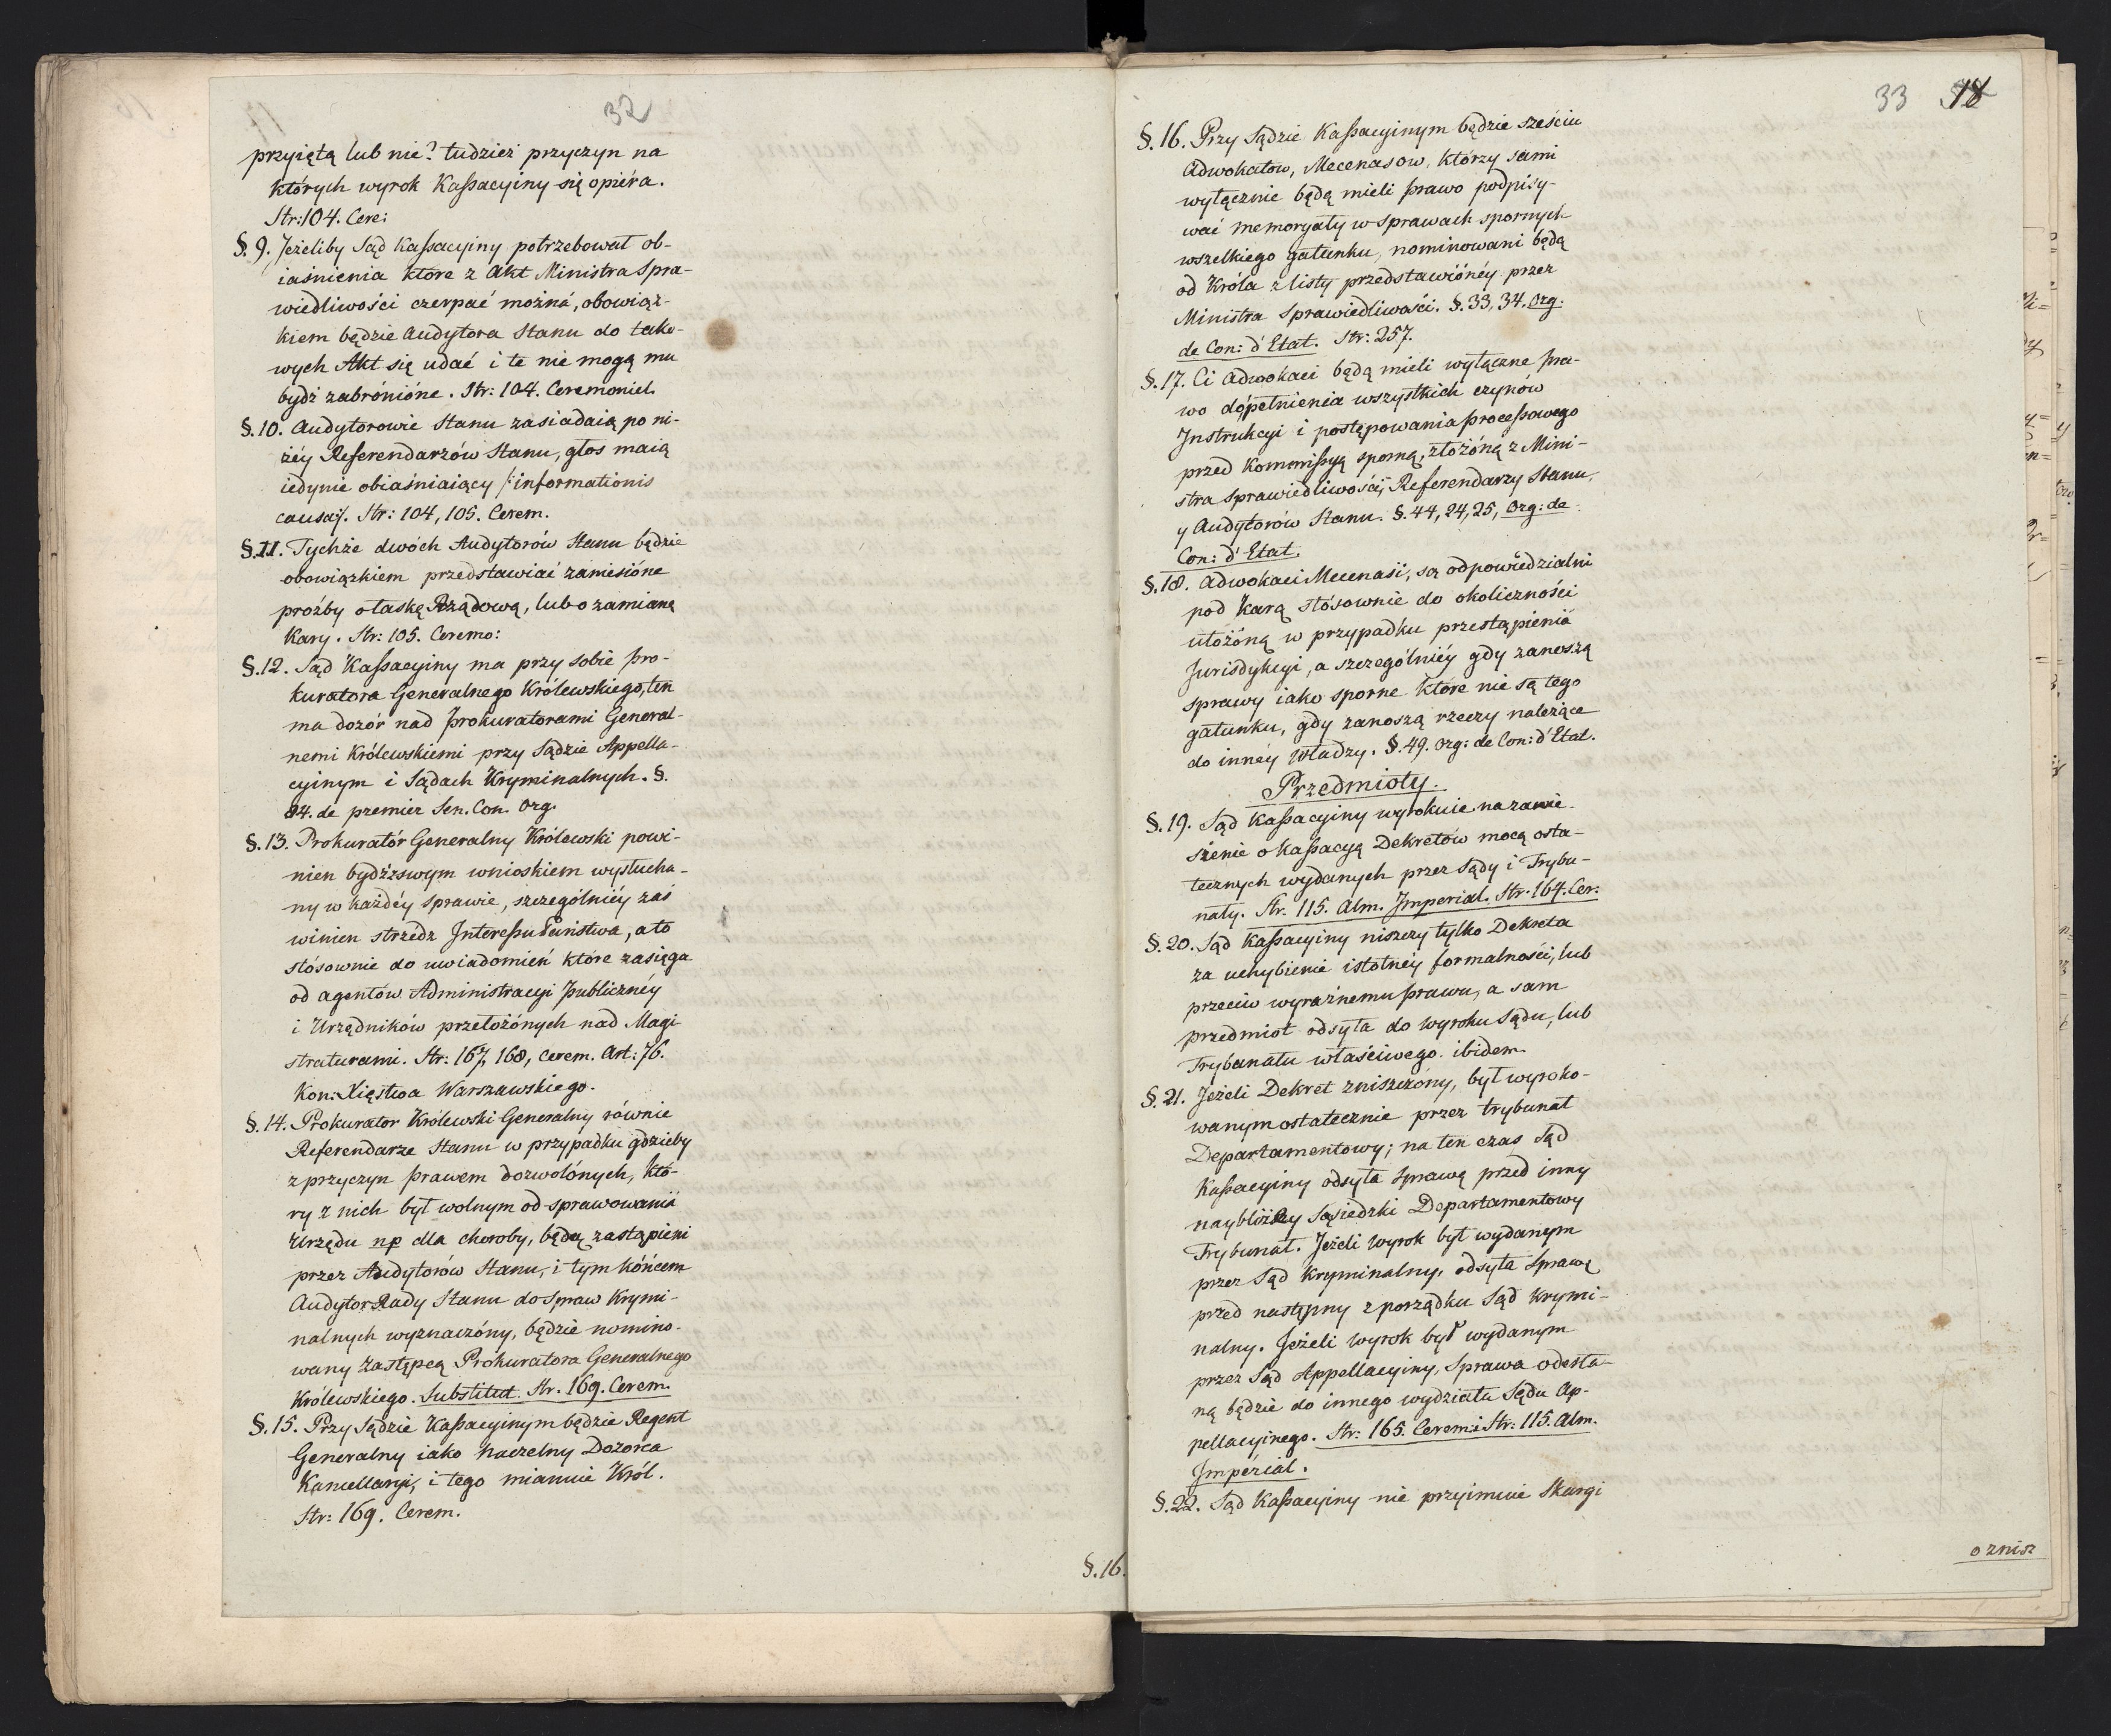 32
przyiętą lub nie? tudzież przyczyn na
których wyrok Kassacyiny się opiéra.
Str: 104. Cere:
§. 9. Jeżeliby Sąd Kassacyiny potrzebował ob-
iaśnienia które z Akt Ministra Spra-
wiedliwości czerpać możná, obowiąz-
kiem będzie Audytora Stanu do tako-
wych Akt się udać i te nie mogą mu
bydź zabrónióne. Str: 104. Ceremoniel.
§. 10. Audytorowie Stanu zasiadaią po ni-
żéy Referendarzów Stanu, głos maią
iedynie obiaśniaiący /: informationis
causa :/. Str: 104, 105. Cerem.
§. 11. Tychże dwóch Audytorów Stanu będzie
obowiązkiem przedstawiać zaniesióne
proźby o łaskę Rządową, lub o zamianę
Kary. Str: 105. Ceremo:
§. 12. Sąd Kassacyiny ma przy sobie pro-
kuratora Generalnego Królewskiego, ten
ma dozór nad prokuratorami General-
nemi Królewskiemi przy Sądzie Appella-
cyinym i Sądach Kryminalnych. §.
84. de premier Sen. Con. Org.
§. 13. Prokuratór Generalny Królewski powi-
nien bydź z swym wnioskiem wysłucha-
ny w każdéy sprawie, szczególniéy zaś
winien strzedz Interessu Państwa, a to
stósownie do uwiadomień które zasięga
od agentów Administracyi publicznéy
i Urzędników przełożónych nad Magi
straturami. Str: 167, 168, Cerem. Art: 76.
Kon: Xięstwa Warszawskiego.
§. 14. Prokurator Królewski Generalny równie
Referendarze Stanu w przypadku gdzieby
z przyczyn prawem dozwolónych, któ-
ry z nich był wolnym od sprawowania
Urzędu np dla choroby, będą zastąpieni
przez Audytorów Stanu, i tym kóńcem
Audytor Rady Stanu do Spraw Krymi-
nalnych wyznaczóny, będzie nomino-
wany zastępcą Prokuratora Generalnego
Królewskiego. Substitut. Str. 169. Cerem.
§. 15. Przy Sądzie Kassacyinym będzie Regent
Generalny iako naczelny Dozorca
Kancellaryi, i tego mianuie Król.
Str: 169. Cerem.
§. 16.
33 18
§. 16. Przy Sądzie Kassacyinym będzie sześciu
Adwokatow, Mecenasow, którzy sami
wyłącznie będą mieli prawo podpisy-
wać memoryały w sprawach spornych
wszelkiego gatunku, nominowani będą
od Króla z listy przedstawiónéy przez
Ministra Sprawiedliwości. §. 33, 34. Org.
de Con: d'Etat. Str: 257.
§. 17. Ci Adwokaci będą mieli wyłączne pra-
wo dópełnienia wszystkich czynów
Instrukcyi i postępowania processowego
przed Kommissyą sporną, złożóną z Mini-
stra Sprawiedliwości, Referendarzy Stanu,
y Audytorów Stanu. §. 44, 24, 25, Org: de
Con: d'Etat.
§. 18. Adwokaci Mecenasi, są odpowiedzialni
pod Karą stósownie do okoliczności
ułożóną w przypadku przestąpienia
Jurisdykcyi, a szczególniéy gdy zanoszą
sprawy iako sporne które nie są tego
gatunku, gdy zanoszą rzeczy należące
do innéy Władzy. §. 49. Org: de Con: d'Etat.
Przedmioty.
§. 19. Sąd Kassacyiny wyrokuie na zanie-
sienie o Kassacyą Dekretów mocą osta-
tecznych wydanych przez Sądy i Trybu-
nały. Str. 115. Alm. Imperial. Str. 164. Cer:
§. 20. Sąd Kassacyiny niszczy tylko Dekreta
za uchybienie istotnéy formalności, lub
przeciw wyraźnemu prawu, a sam
przedmiot odsyła do wyroku Sądu, lub
Trybunału właściwego. ibidem.
§. 21. Jeżeli Dekret zniszczóny, był wyroko-
wanym ostatecznie przez trybunał
Departamentowy; na ten czas Sąd
Kassacyiny odsyła sprawę przed inny
naybliższy sąsiedzki Departamentowy
Trybunał. Jeżeli wyrok był wydanym
przez Sąd Kryminalny, odsyła Sprawę
przed następny z porządku Sąd Krymi-
nalny. Jeżeli wyrok był wydanym
przez Sąd Appellacyiny, Sprawa odesła-
ną będzie do innego wydziału Sądu Ap-
pellacyinego. Str: 165. Cerem: i Str: 115. Alm.
Impérial.
§. 22. Sąd Kassacyiny nie przyimuie Skargi
o znisz